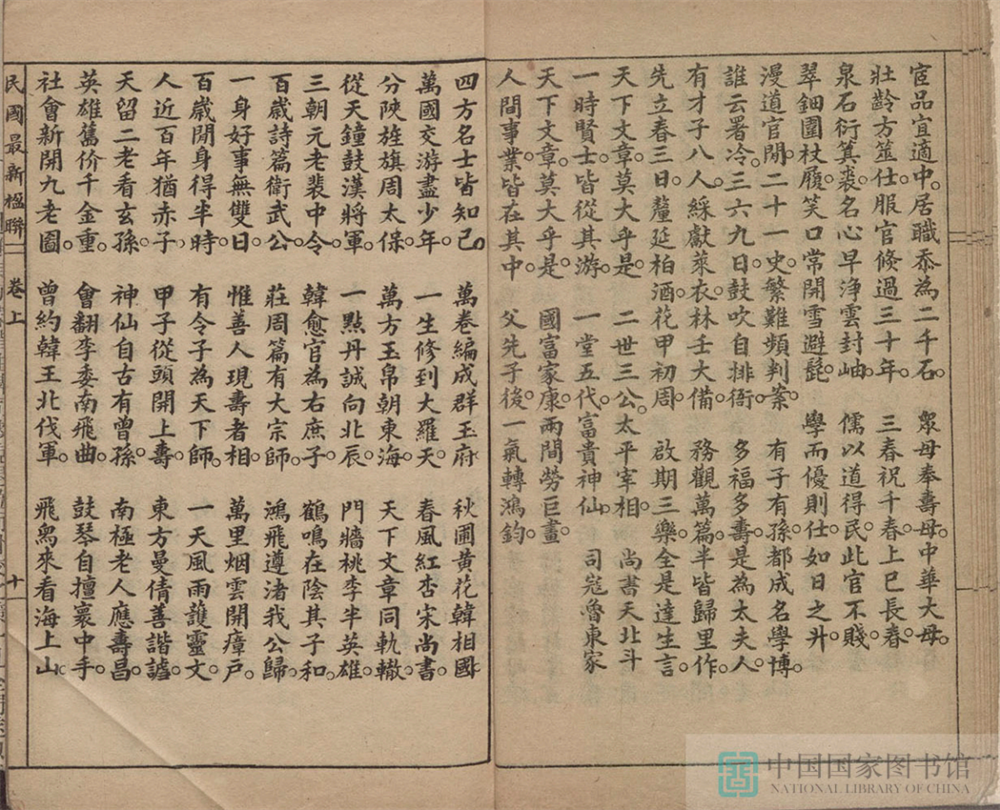 宦品宜適中。居職忝為二千石。　眾母奉壽母。中華大母。
壯齡方筮仕。服官倏過三十年。　三春祝千春。上巳長春。
泉石衍箕裘。名心早淨雲封岫。　儒以道得民。此官不賤
翠鈿圍杖履。笑口常開雪避髭。　學而優則仕。如日之升
漫道官閒。二十一史。繁難頻判案。　有子有孫。都成名學博。
誰云署冷。三六九日。鼓吹自排衙。　多福多壽。是為太夫人。
有才子八人。綵獻萊衣。林壬大備　務觀萬篇。半皆歸里作。
先立春三日。釐延柏酒。花甲初周。　啟期三樂。全是達生言。
天下文章。莫大乎是。　二世三公。太平宰相。　尚書天北斗
一時賢士。皆從其游。　一堂五代。富貴神仙。　司寇魯東家
天下文章。莫大乎是。　國富家康。兩間勞巨畫。
人間事業。皆在其中　父先子後。一氣轉鴻鈞。
四方名士皆知己。　萬卷編成群玉府　秋圃黃花韓相國
萬國交游盡少年。　一生修到大羅天。　春風紅杏宋尚書。
分陝旌旗周太保　萬方玉帛朝東海　天下文章同軌轍。
從天鐘鼓漢將軍。　一點丹誠向北辰。　門牆桃李半英雄
三朝元老裴中令　韓愈官為右庶子　鶴鳴在陰其子和。
百歲詩篇衛武公。　莊周篇有大宗師。　鴻飛遵渚我公歸。
一身好事無雙日　惟善人現壽者相　萬里烟雲開瘴戶。
百歲閒身得半時　有令子為天下師。　一天風雨護靈文。
人近百年猶赤子　甲子從頭開上壽　東方曼倩善諧謔。
天留二老看玄孫。　神仙自古有曾孫。　南極老人應壽昌。
英雄舊价千金重。　會翻李委南飛曲。　鼓琴自擅裹中手。
社會新開九老圖。　曾約韓王北伐軍。　飛舄來看海上山。
民國最新楹聯　卷上　十
中国国家图书馆
NATIONAL LIBRARY OF CHINA